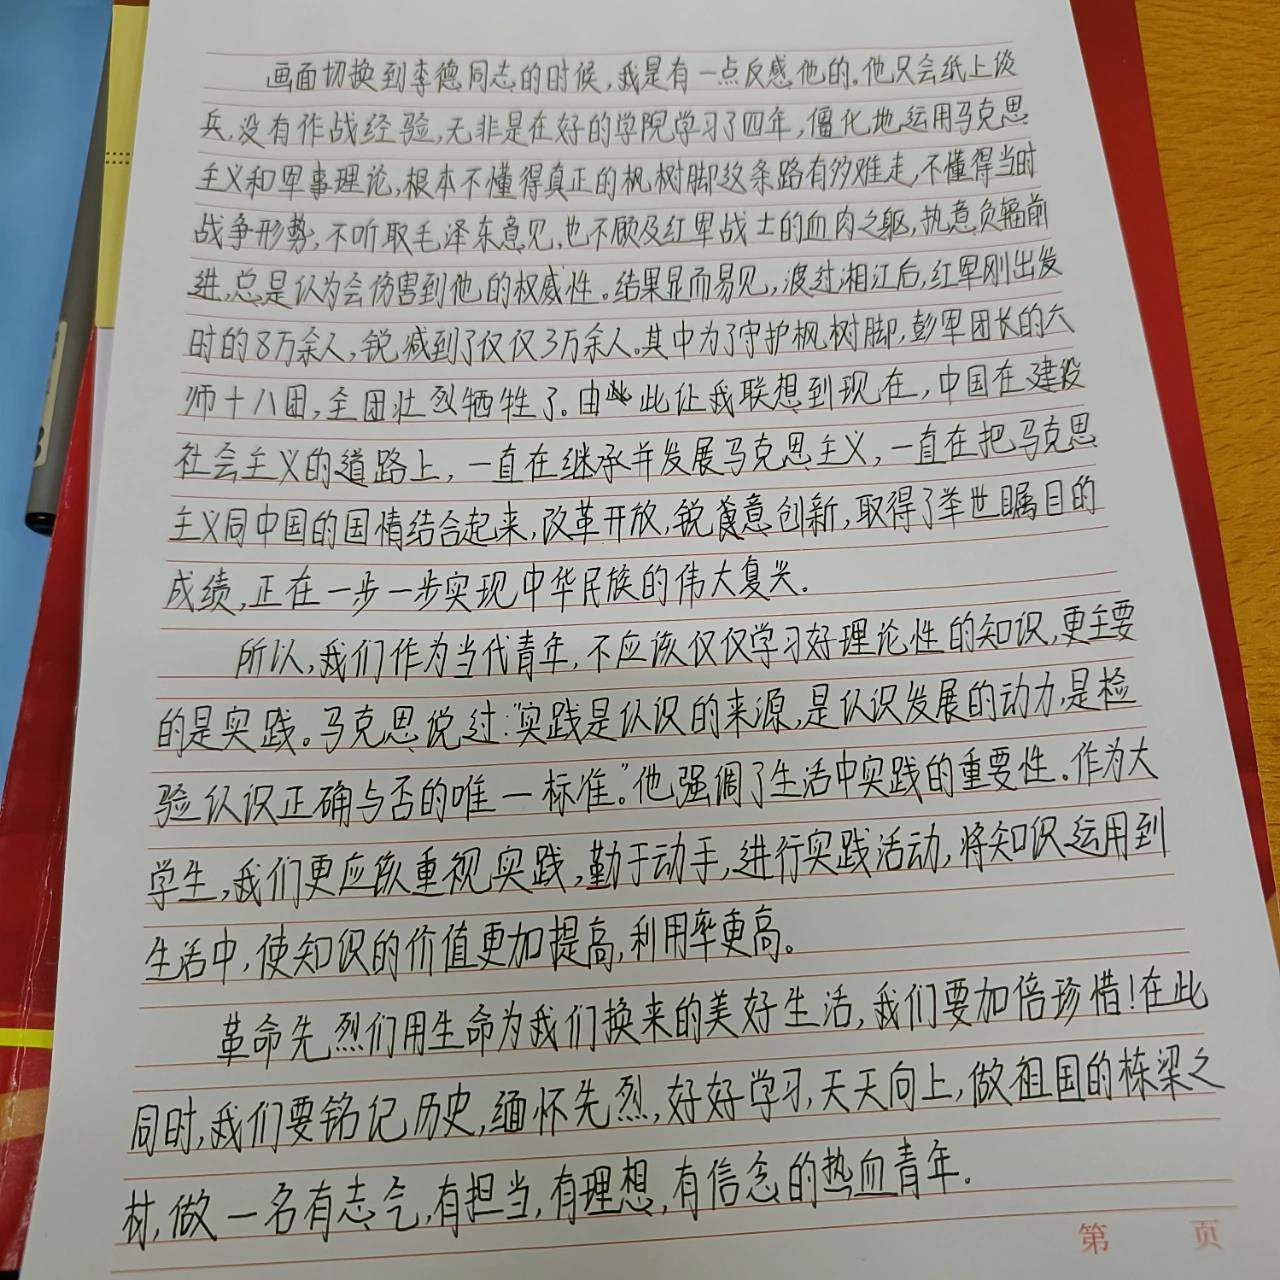 画面切换到李德同志的时候,我是有一点反感他的。他只会纸上谈
兵,没有作战经验,无非是在好的学院学习了四年,僵化地运用马克思
主义和军事理论,根本不懂得真正的枫树脚这条路有多难走,不懂得当时
战争形势,不听取毛泽东意见,也不顾及红军战士的血肉之躯,执意负辎前
进,总是认为会伤害到他的权威性。结果显而易见,渡过湘江后,红军刚出发
时的8万余人,锐减到了仅仅3万余人。其中为了守护枫树脚,彭军团长的六
师十八团,全团壮烈牺牲了。由此让我联想到现在,中国在建设
社会主义的道路上,一直在继承并发展马克思主义,一直在把马克思
主义同中国的国情结合起来,改革开放,锐意创新,取得了举世瞩目的
成绩,正在一步一步实现中华民族的伟大复兴。
所以,我们作为当代青年,不应该仅仅学习好理论性的知识,更主要
的是实践。马克思说过:“实践是认识的来源,是认识发展的动力,是检
验认识正确与否的唯一标准。”他强调了生活中实践的重要性。作为大
学生,我们更应该重视实践,勤于动手,进行实践活动,将知识运用到
生活中,使知识的价值更加提高,利用率更高。
革命先烈们用生命为我们换来的美好生活,我们要加倍珍惜!在此
同时,我们要铭记历史,缅怀先烈,好好学习,天天向上,做祖国的栋梁之
材,做一名有志气,有担当,有理想,有信念的热血青年。
第 页